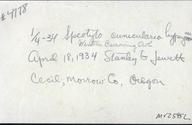 #4778
1/4-34 Speotyto cunicularia hypugaea
Western Burrowing Owl
April 18, 1934 Stanley G. Jewett
Cecil, Morrow Co, Oregon